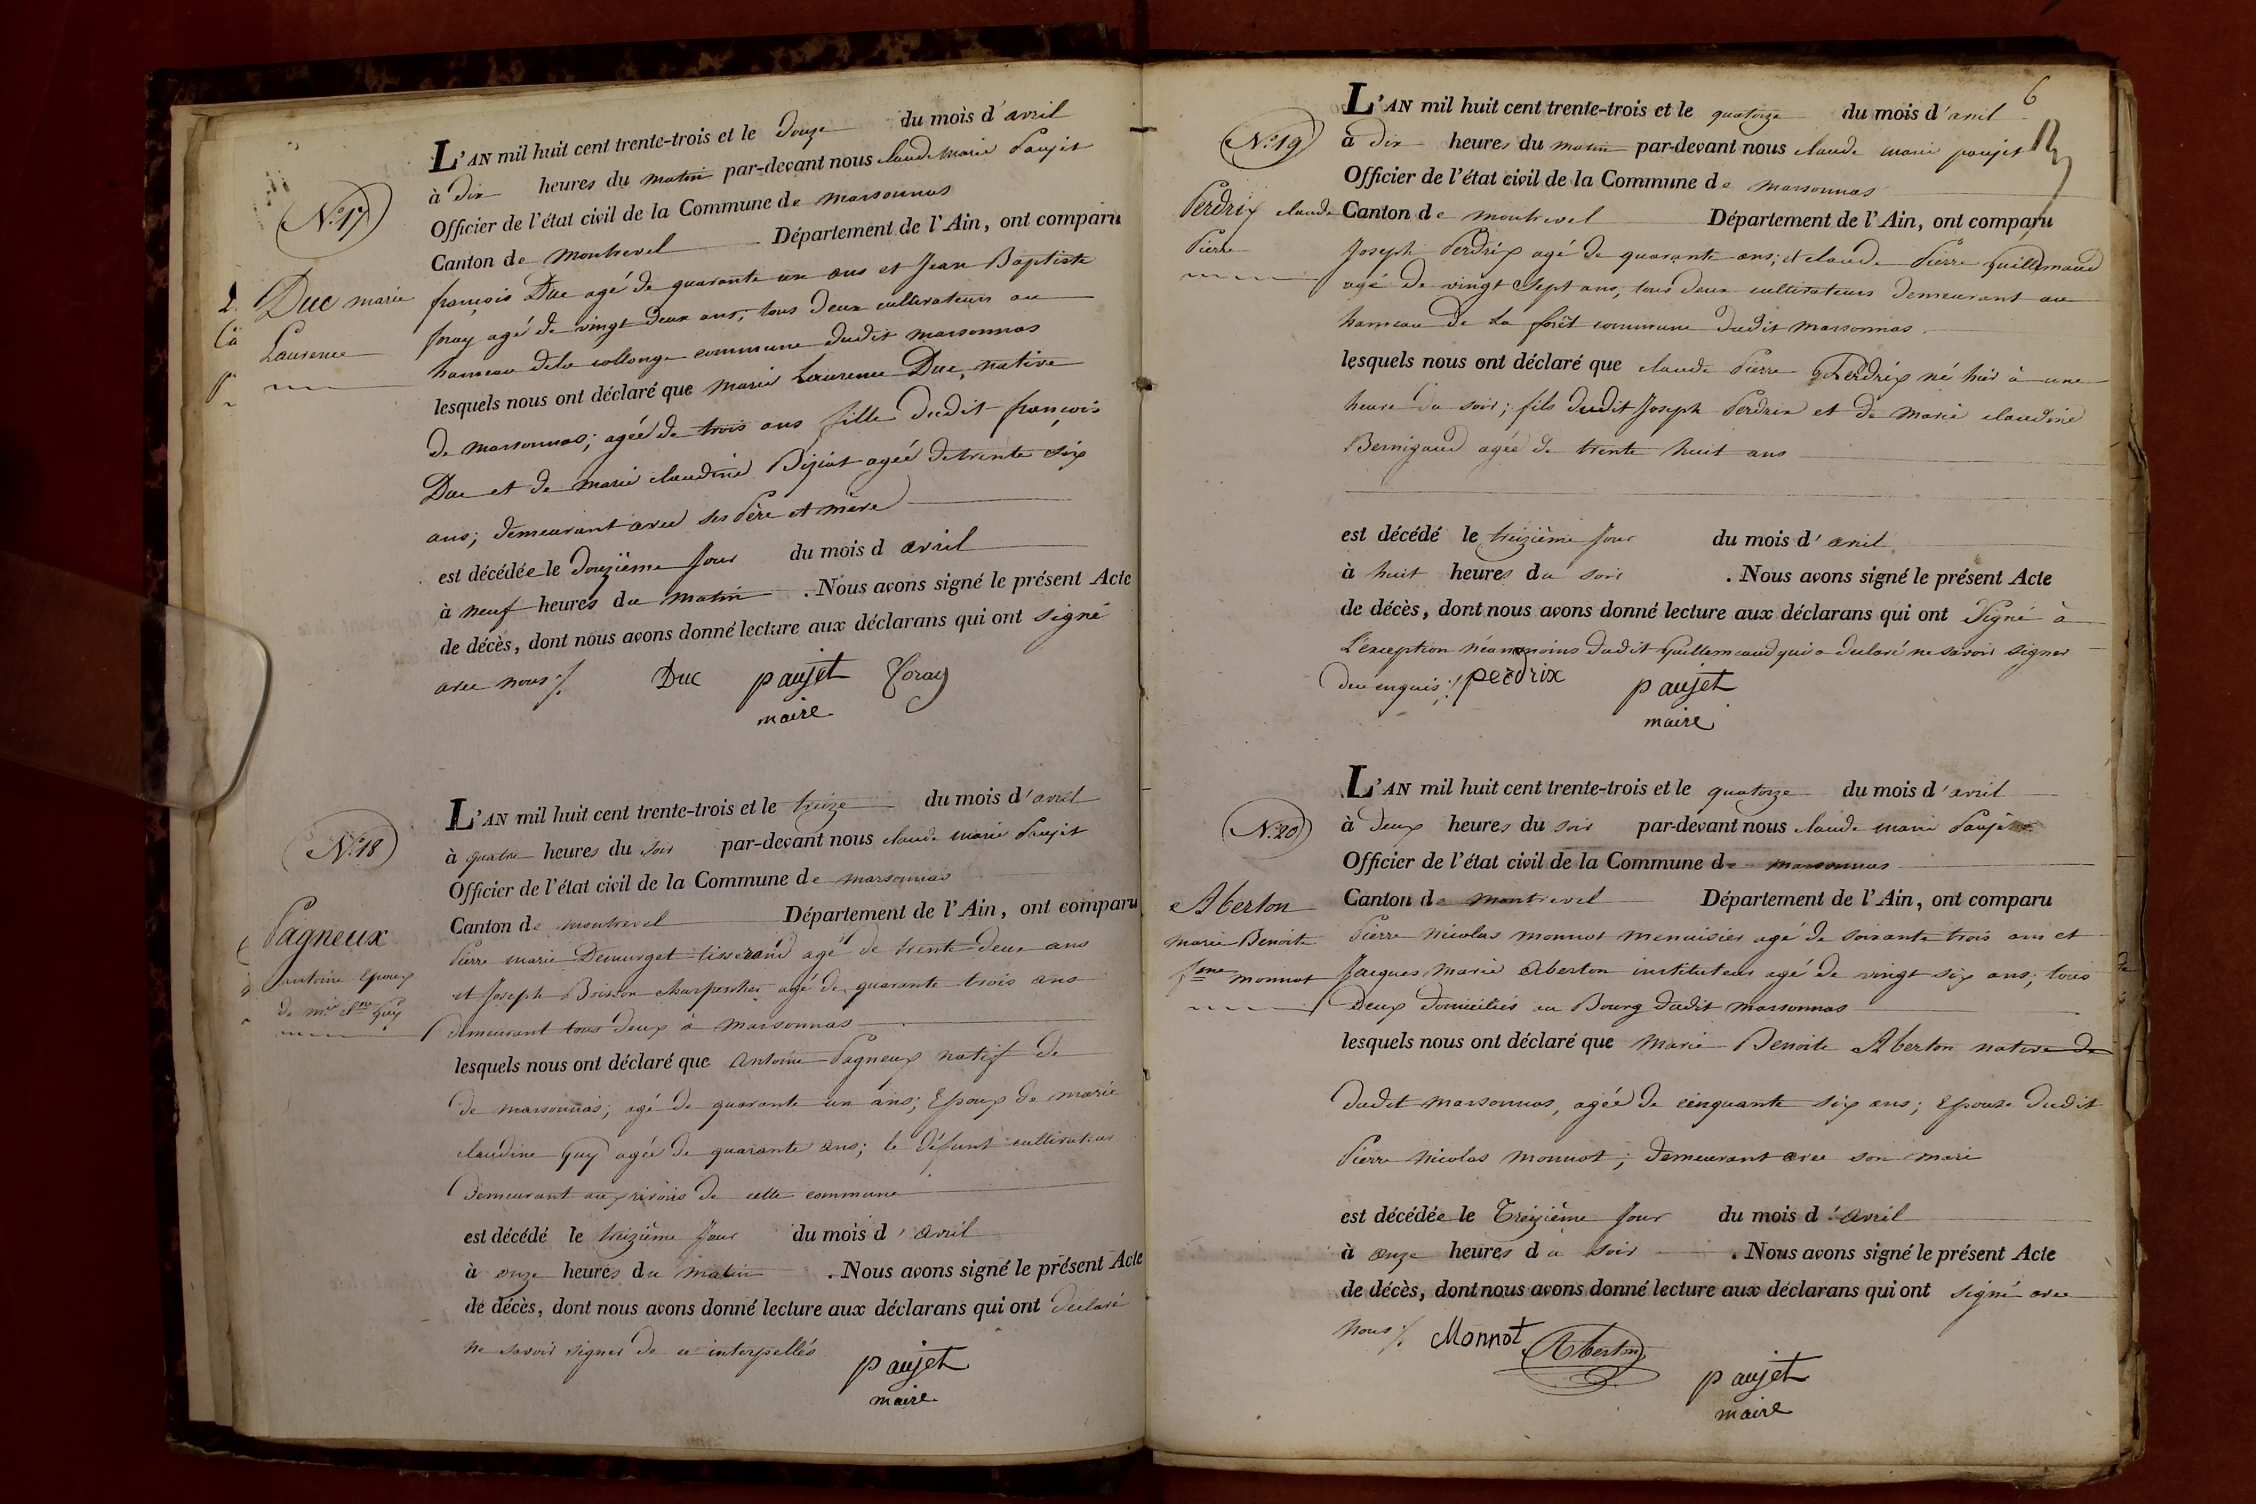 L'AN mil huit cent trente-trois et le douze du mois d'avril
N.° 17
à dix heures du matin par-devant nous claude marie paujet
Officier de l'état civil de la Commune de marsonnas
Canton de montrevel Département de l'Ain, ont comparu
Duc marie
Laurence
françois Duc agé de quarante un ans et Jean Baptiste
foray agé de vingt deux ans, tous deux cultivateurs au
hameau dela collonge commune dudit marsonnas
lesquels nous ont déclaré que marie Laurence Duc, native
de marsonnas; agée de trois ans fille dudit françois
Duc et de marie claudine Biziat agée de trente six
ans; demeurant avec ses père et mère
est décédée le douzième jour du mois d avril
à neuf heures du matin . Nous avons signé le présent Acte
de décès, dont nous avons donné lecture aux déclarans qui ont signé
avec nous ./. Duc paujet foray
maire
L'AN mil huit cent trente-trois et le treize du mois d'avril
N.° 18
à quatre heures du soir par-devant nous claude marie paujet
Officier de l'état civil de la Commune de marsonnas
Canton de montrevel Département de l'Ain, ont comparu
Pagneux
antoine Epoux
de m.ie C.ne Guy
Pierre marie Demurget tisserand agé de trente deux ans
et Joseph Boisson charpentier agé de quarante trois ans
demeurant tous deux à marsonnas
lesquels nous ont déclaré que antoine Pagneux natif de
de marsonnas; agé de quarante un ans; Epoux de marie
claudine Guy agée de quarante ans; le défunt cultivateur
demeurant aux rivoirs de cette commune
est décédé le treizième jour du mois d'avril
à onze heures du matin . Nous avons signé le présent Acte
de décès, dont nous avons donné lecture aux déclarans qui ont declaré
ne savoir signer de ce interpellés
paujet
maire
6
L'AN mil huit cent trente-trois et le quatorze du mois d'avril
N.° 19
à dix heures du matin par-devant nous claude marie paujet
Officier de l'état civil de la Commune de marsonnas
Perdrix claude
Pierre
Canton de montrevel Département de l'Ain, ont comparu
Joseph Perdrix agé de quarante ans; et claude Pierre Guillemaud
agé de vingt sept ans, tous deux cultivateurs demeurant au
hameau de la forêt commune dudit marsonnas
lesquels nous ont déclaré que claude Pierre Perdrix né hier à une
heure du soir; fils dudit Joseph Perdrix et de marie claudine
Bernigaud agée de trente huit ans
est décédé le treizième jour du mois d'avril
à huit heures du soir . Nous avons signé le présent Acte
de décès, dont nous avons donné lecture aux déclarans qui ont signé à
l'exception néanmoins dudit Guillemaud qui a declaré ne savoir signer
de ce enquis; ./. perdrix paujet
maire
L'AN mil huit cent trente-trois et le quatorze du mois d'avril
N.° 20
à deux heures du soir par-devant nous claude marie Paujet
Officier de l'état civil de la Commune de marsonnas
Aberton
marie Benoite
f.me monnot
Canton de montrevel Département de l'Ain, ont comparu
Pierre nicolas monnot menuisier agé de soixante trois ans et
Jacques marie aberton instituteur agé de vingt six ans; tous
deux domiciliés au Bourg dudit marsonnas
lesquels nous ont déclaré que marie Benoite Aberton native de
dudit marsonnas, agée de cinquante six ans; Epouse dudit
Pierre nicolas monnot; demeurant avec son mari
est décédée le treizième jour du mois d'avril
à onze heures du soir . Nous avons signé le présent Acte
de décès, dont nous avons donné lecture aux déclarans qui ont signé avec
nous ./. Monnot Aberton
paujet
maire